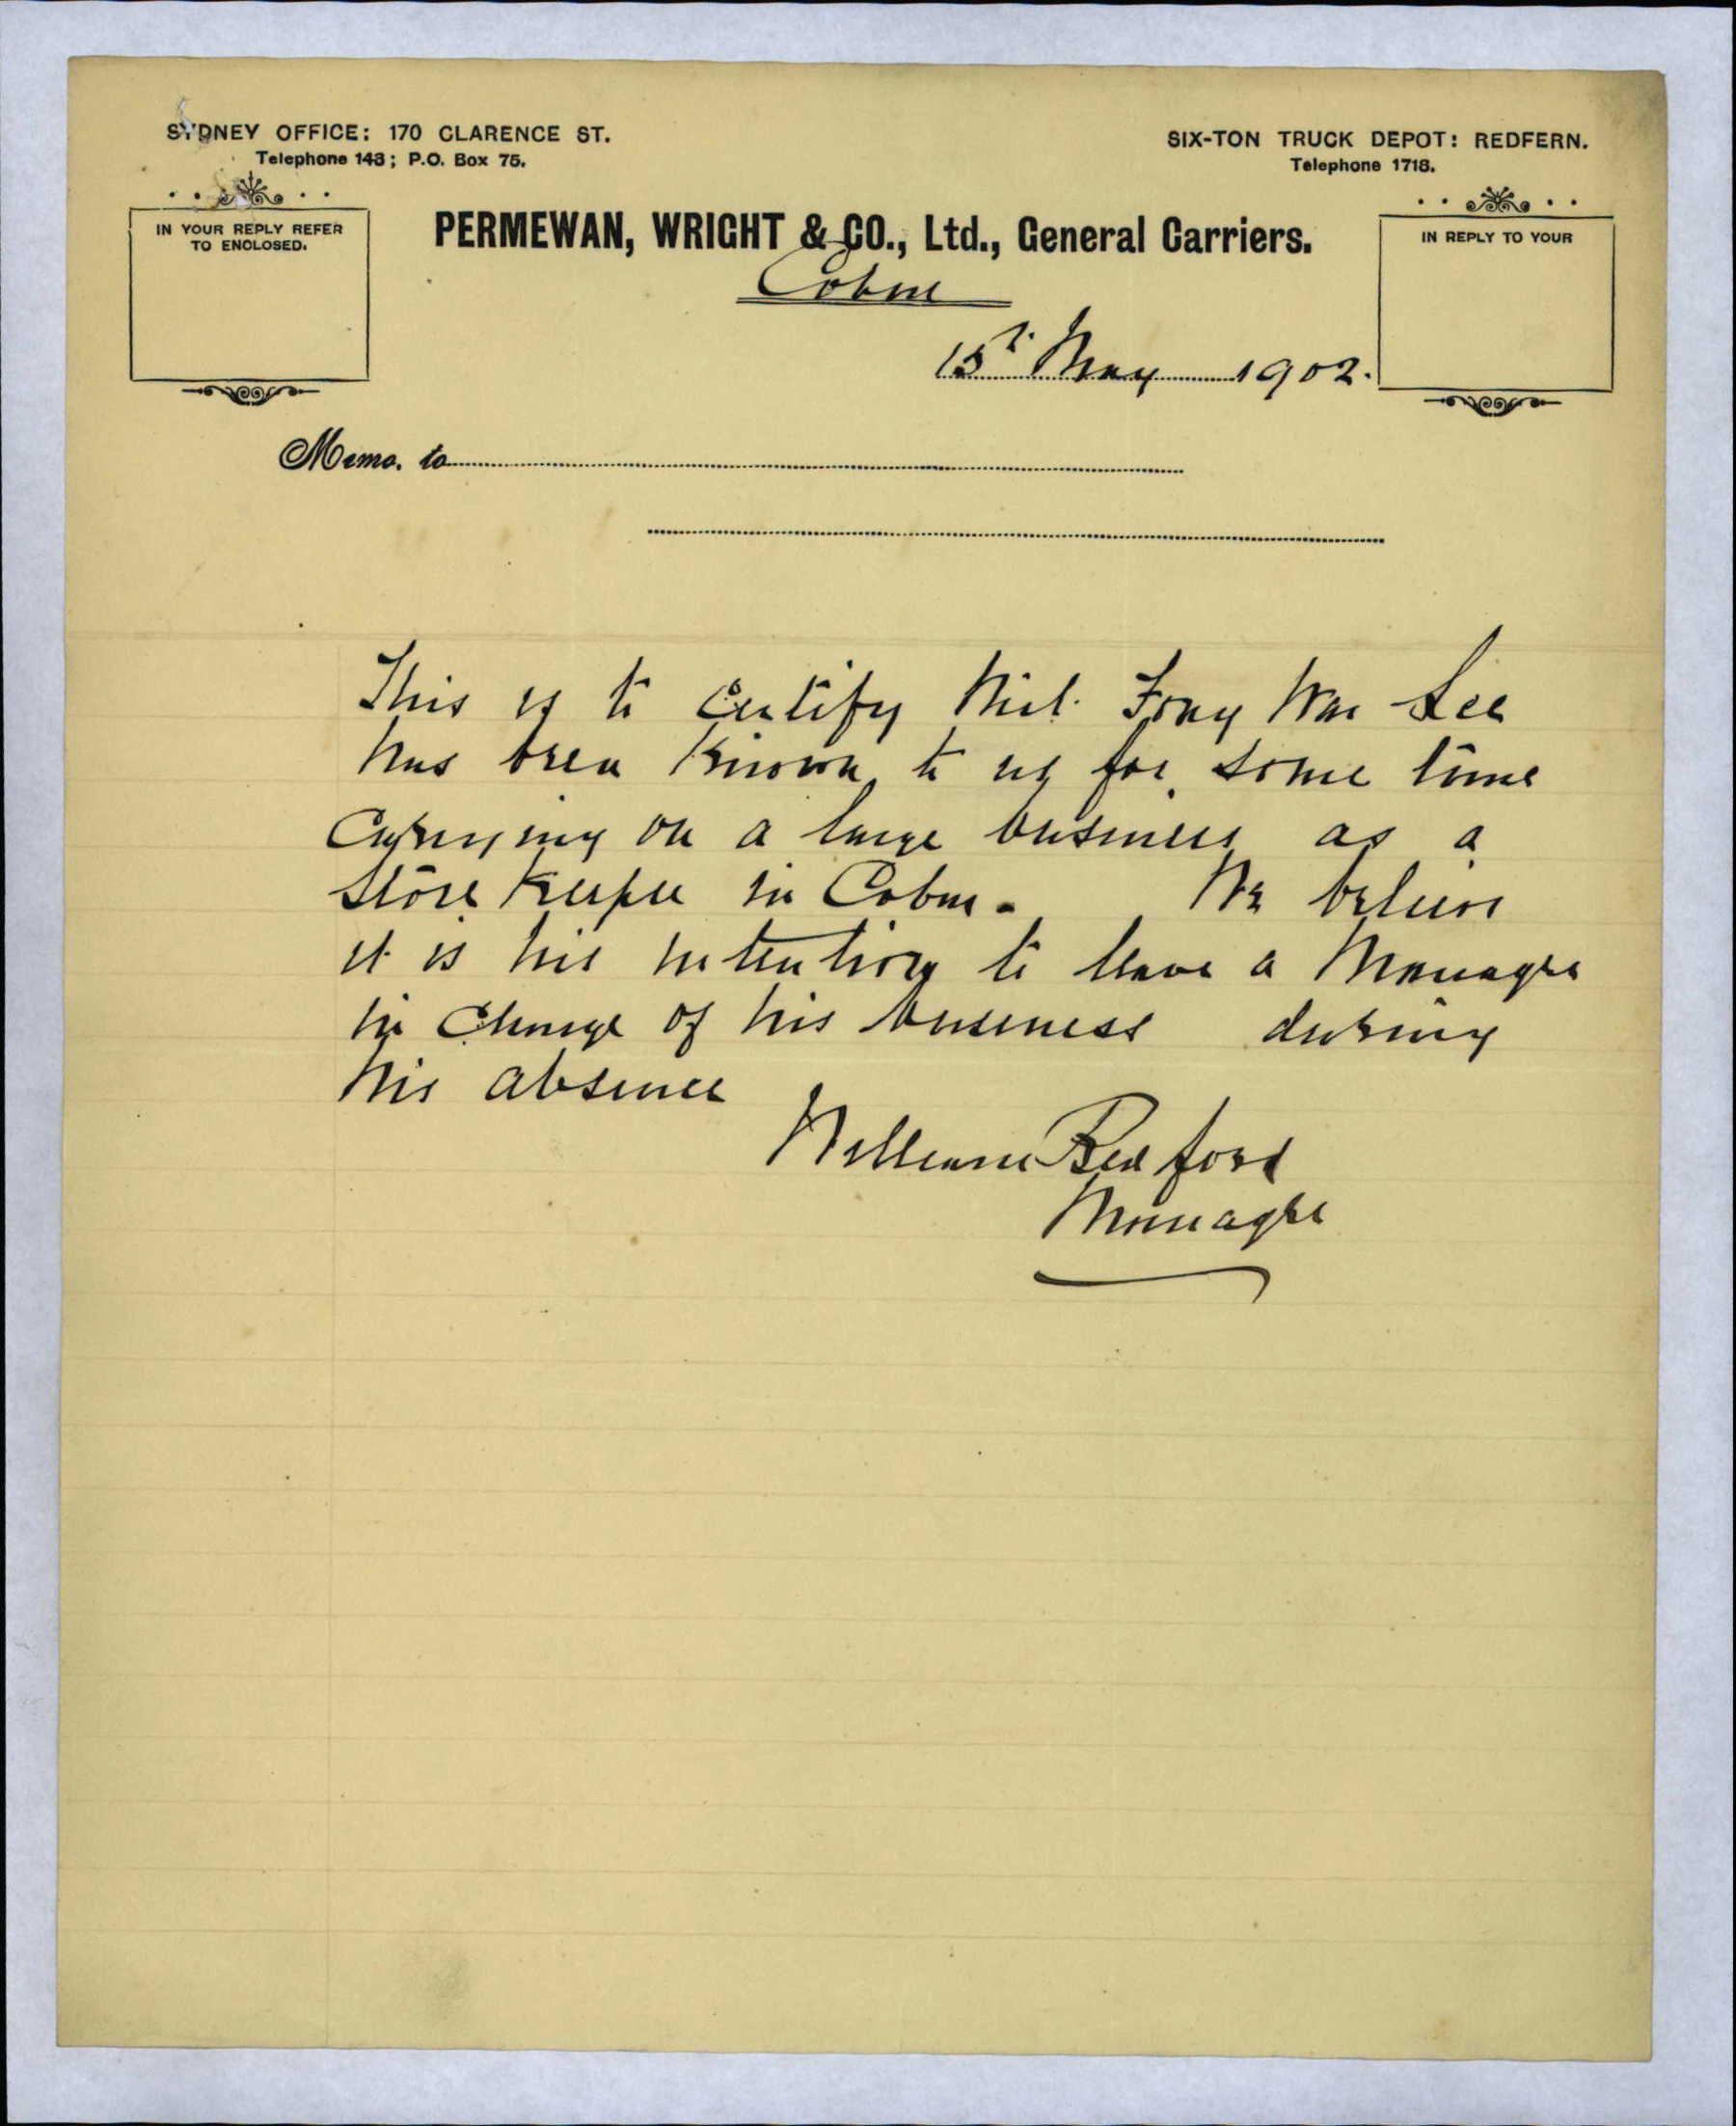 SYDNEY OFFICE: 170 CLARENCE ST.
Telephone 143; P.O. Box 75.
SIX-TON TRUCK DEPOT: REDFERN.
Telephone 1718.
IN YOUR REPLY REFER
TO ENCLOSED.
IN REPLY TO YOUR
PERMEWAN, WRIGHT & CO., Ltd., General Carriers.
Cobar
15th May 1902.
Memo. to
This is to Certify that Fong War Lee
has been Known to us for some time
Carrying on a large business as a
Store Keeper in Cobar. We believe
it is his intention to leave a Manager
in Charge of his business during
his absence
William Redford
Manager